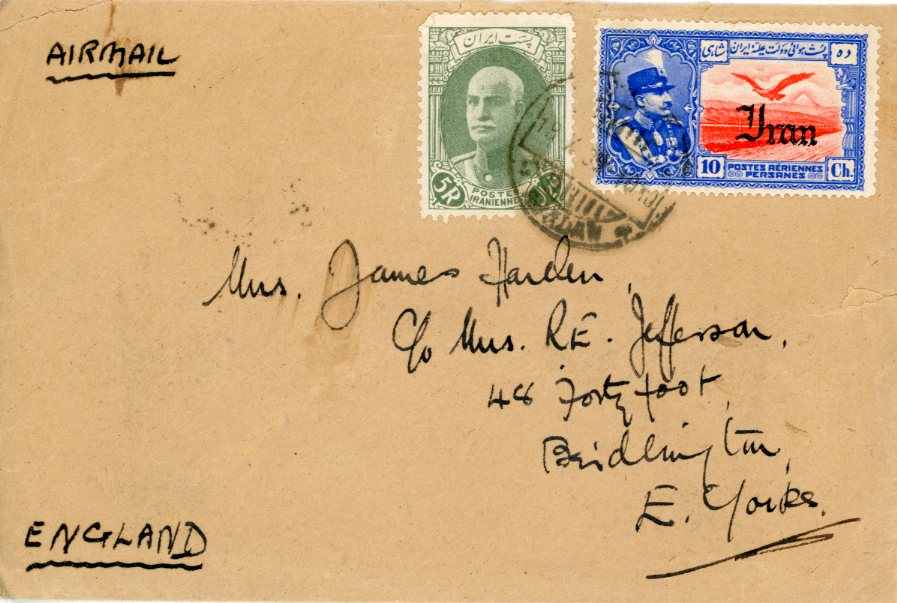 AIRMAIL
پست ایران
5R
POSTES
IRANIENNES
ده
پست هوائی دولت علیه ایران
شاهی
Iran
10
POSTES AÉRIENNES
PERSANES
Ch.
Mrs. James Harden,
c/o Mrs. R.E. Jefferson,
48 Fortyfoot,
Bridlington,
E. Yorks.
ENGLAND